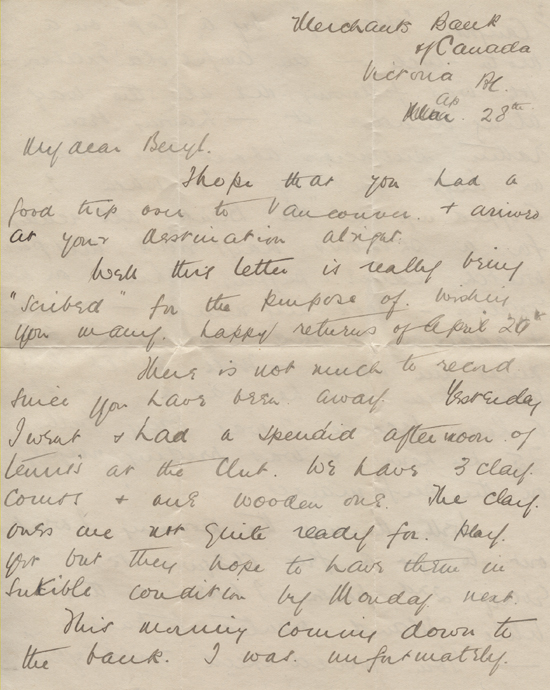 Merchants Bank
of Canada
Victoria BC.
28th
My dear Beryl.
I hope that you had a
good trip over to Vancouver. & arrived
at your destination alright.
Well this letter is really being
"scribed" for the purpose of. wishing
you many. happy returns of April
There is not much to record.
since you have been away. Yesterday
I went & had a spendid afternoon of
tennis at the Club. We have 3 clay.
courts & one wooden one. The clay.
ones are not quite ready for. play.
yet but they hope to have them in
condition by Monday next.
This morning coming down to
the bank. I was. unfortunately.